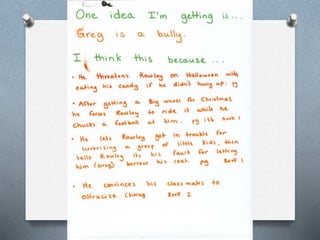 One idea I'm getting is...
Greg is a bully.
I think this because...
• He threatens Rowley on Halloween with
eating his candy if he didn't hurry up. pg
• After getting a Big wheel for Christmas
he forces Rowley to ride it while he
chucks a football at him. pg 136 Book 1
• He lets Rowley get in trouble for
terrorizing a group of little kids, then
tells Rowley its his fault for letting
him (Greg) borrow his coat. pg Book 1
• He convinces his classmates to
ostracise Chirag Book 2